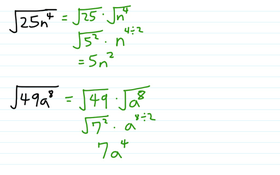 √25n⁴ = √25 · √n⁴
√5² · n⁴÷²
= 5n²
√49a⁸ = √49 · √a⁸
√7² · a⁸÷²
7a⁴